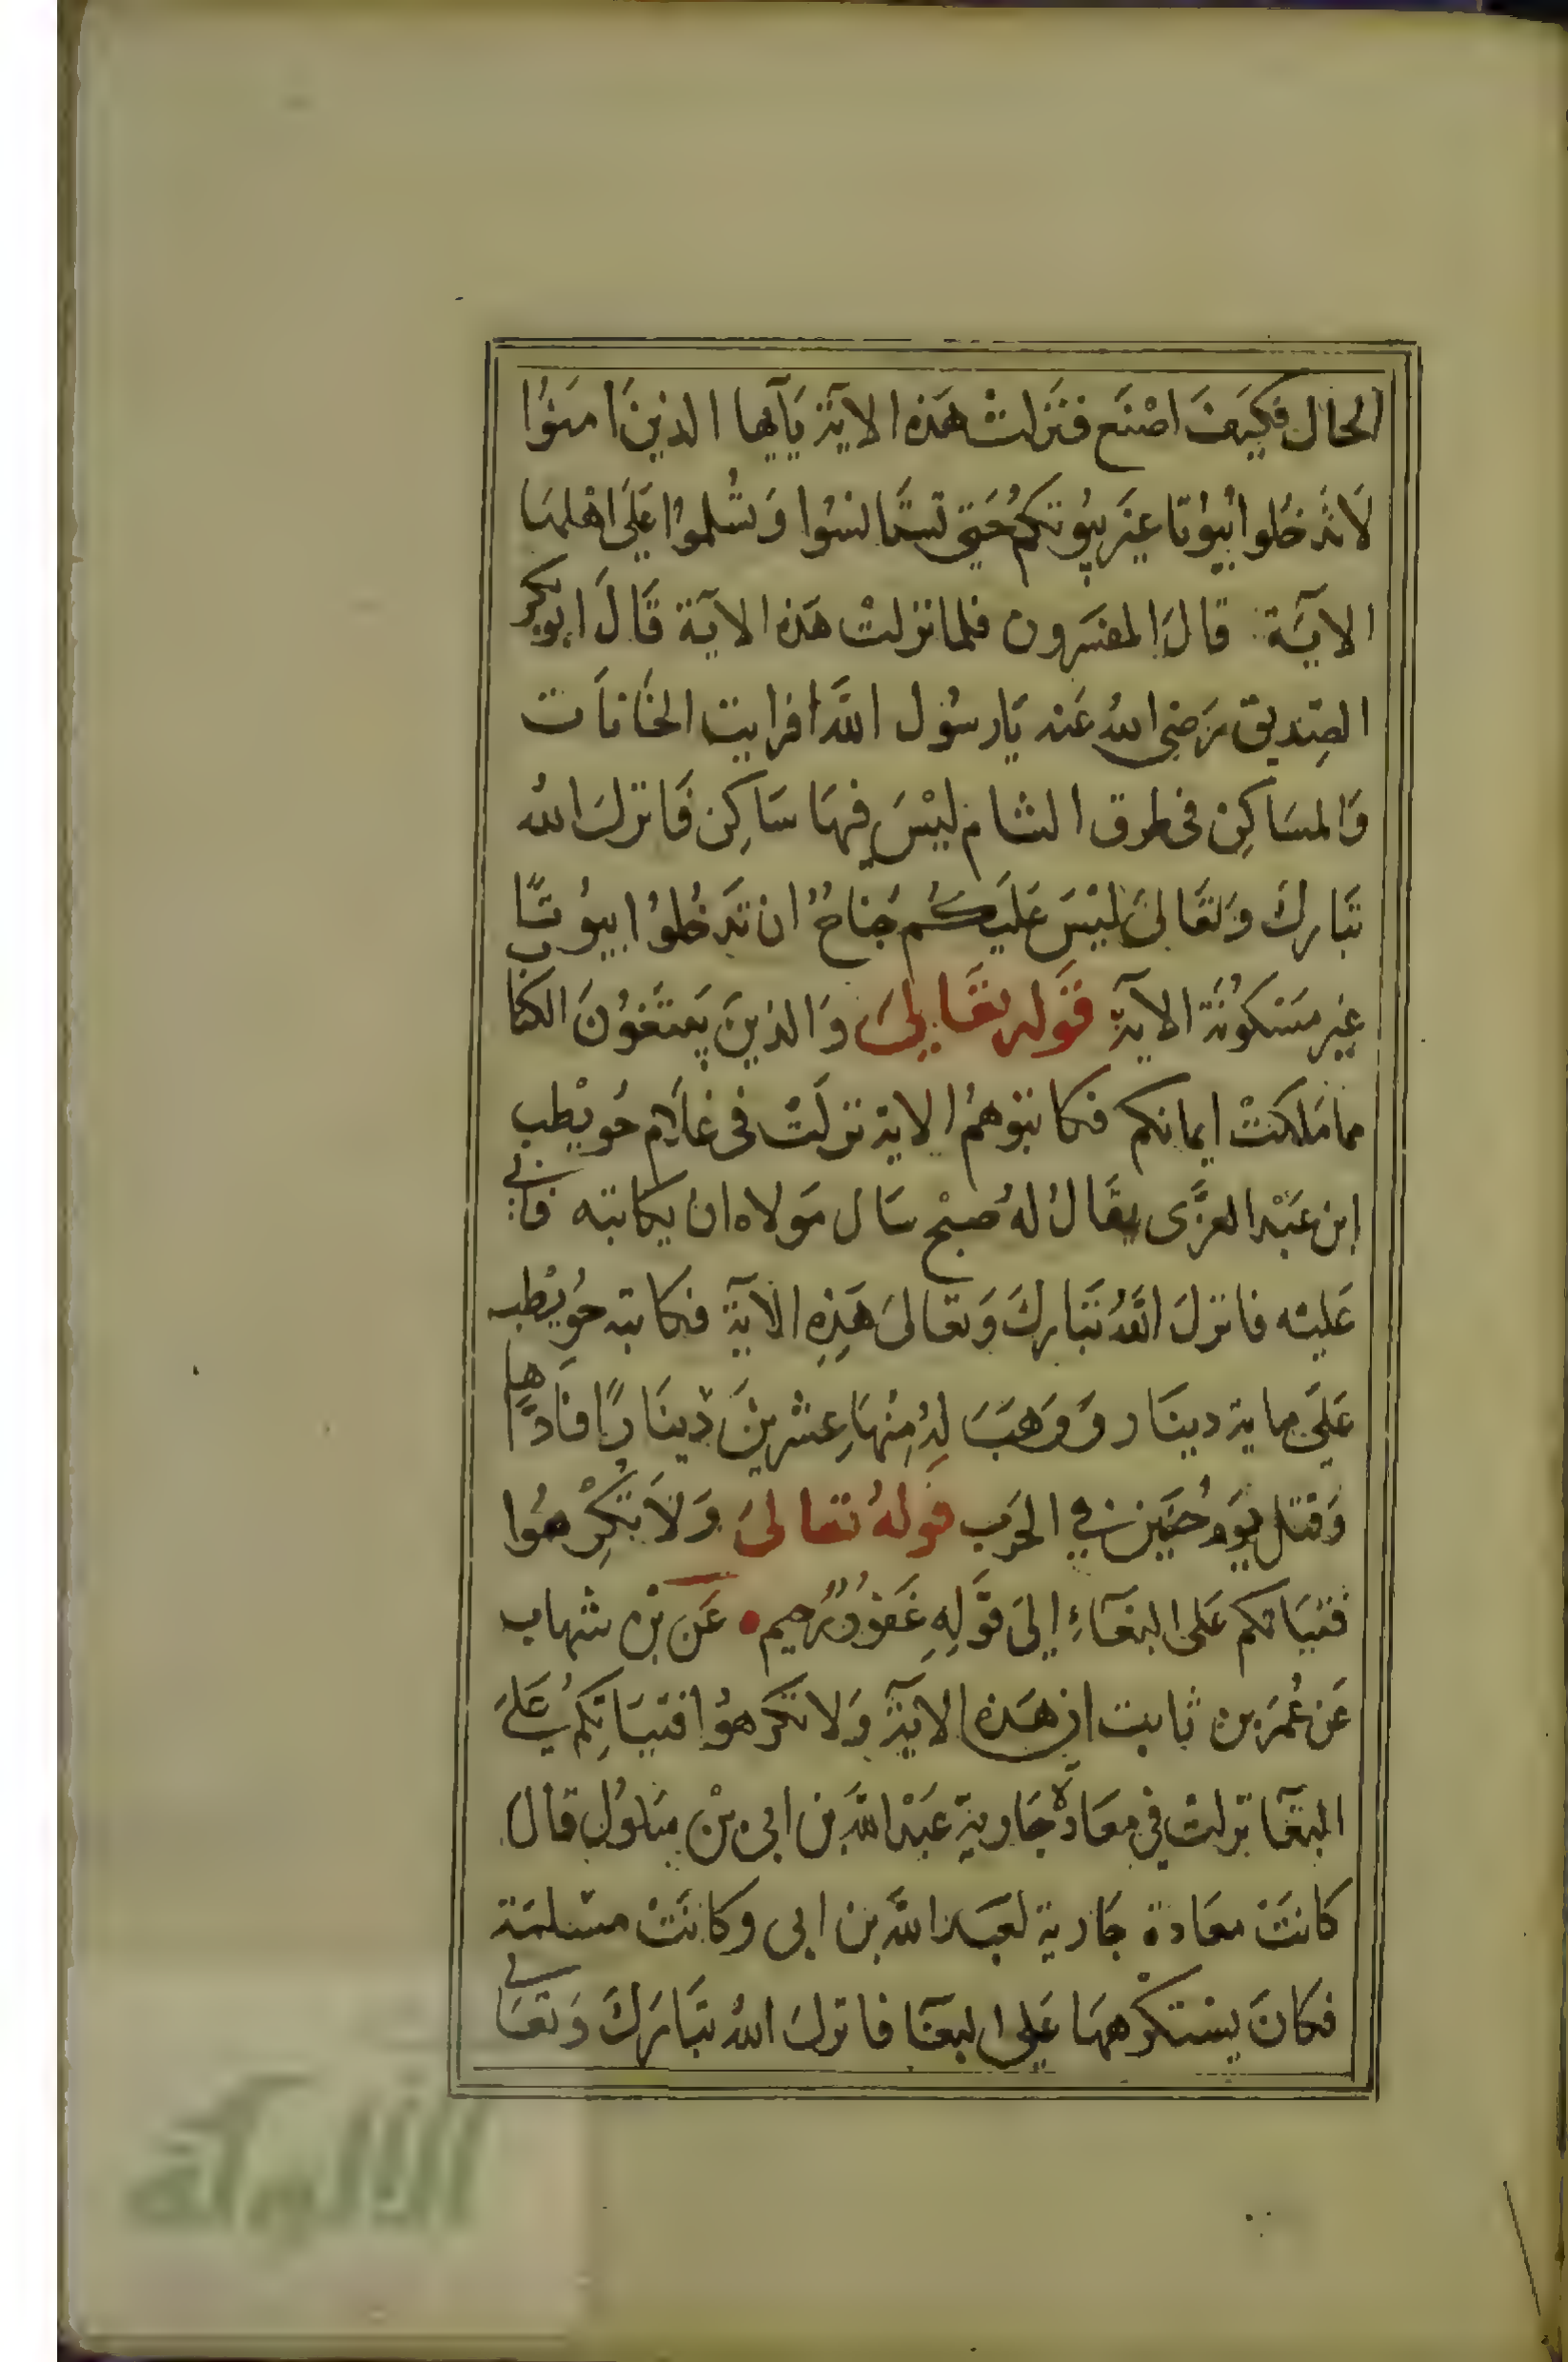 الحال فكيف اصنع فنزلت هذه الاية يآيها الذين امنوا
لا تدخلوا بيوتا غير بيوتكم حتى تستانسوا وتسلموا على اهلها
الاية قال المفسرون فلما نزلت هذه الآية قال ابو بكر
الصديق رضي الله عنه يا رسول الله افرايت الخانات
والمساكن فى طرق الشام ليس فيها ساكن فانزل الله
تبارك وتعالى ليس عليكم جناح ان تدخلوا بيوتا
غير مسكونة الآية قوله تعالى والذين يبتغون الكتا
مما ملكت ايمانكم فكاتبوهم الاية نزلت فى غلام حويطب
ابن عبد العزى يقال له صبح سال مولاه ان يكاتبه فابى
عليه فانزل الله تبارك وتعالى هذه الآية فكاتبه حويطب
على ماية دينار ووهب له منها عشرين دينارا فاداها
وقتل يوم حنين في الحرب قوله تعالى ولا تكرهوا
فتياتكم على البغآء إلى قوله غفور رحيم عن بن شهاب
عن عمر بن ثابت ان هذه الآية ولا تكرهوا فتياتكم على
البغآ نزلت في معادة جارية عبد الله بن ابى بن سلول قال
كانت معادة جارية لعبد الله بن ابى وكانت مسلمة
فكان يستكرهها على البغآ فانزل الله تبارك وتعالى
الألوكة